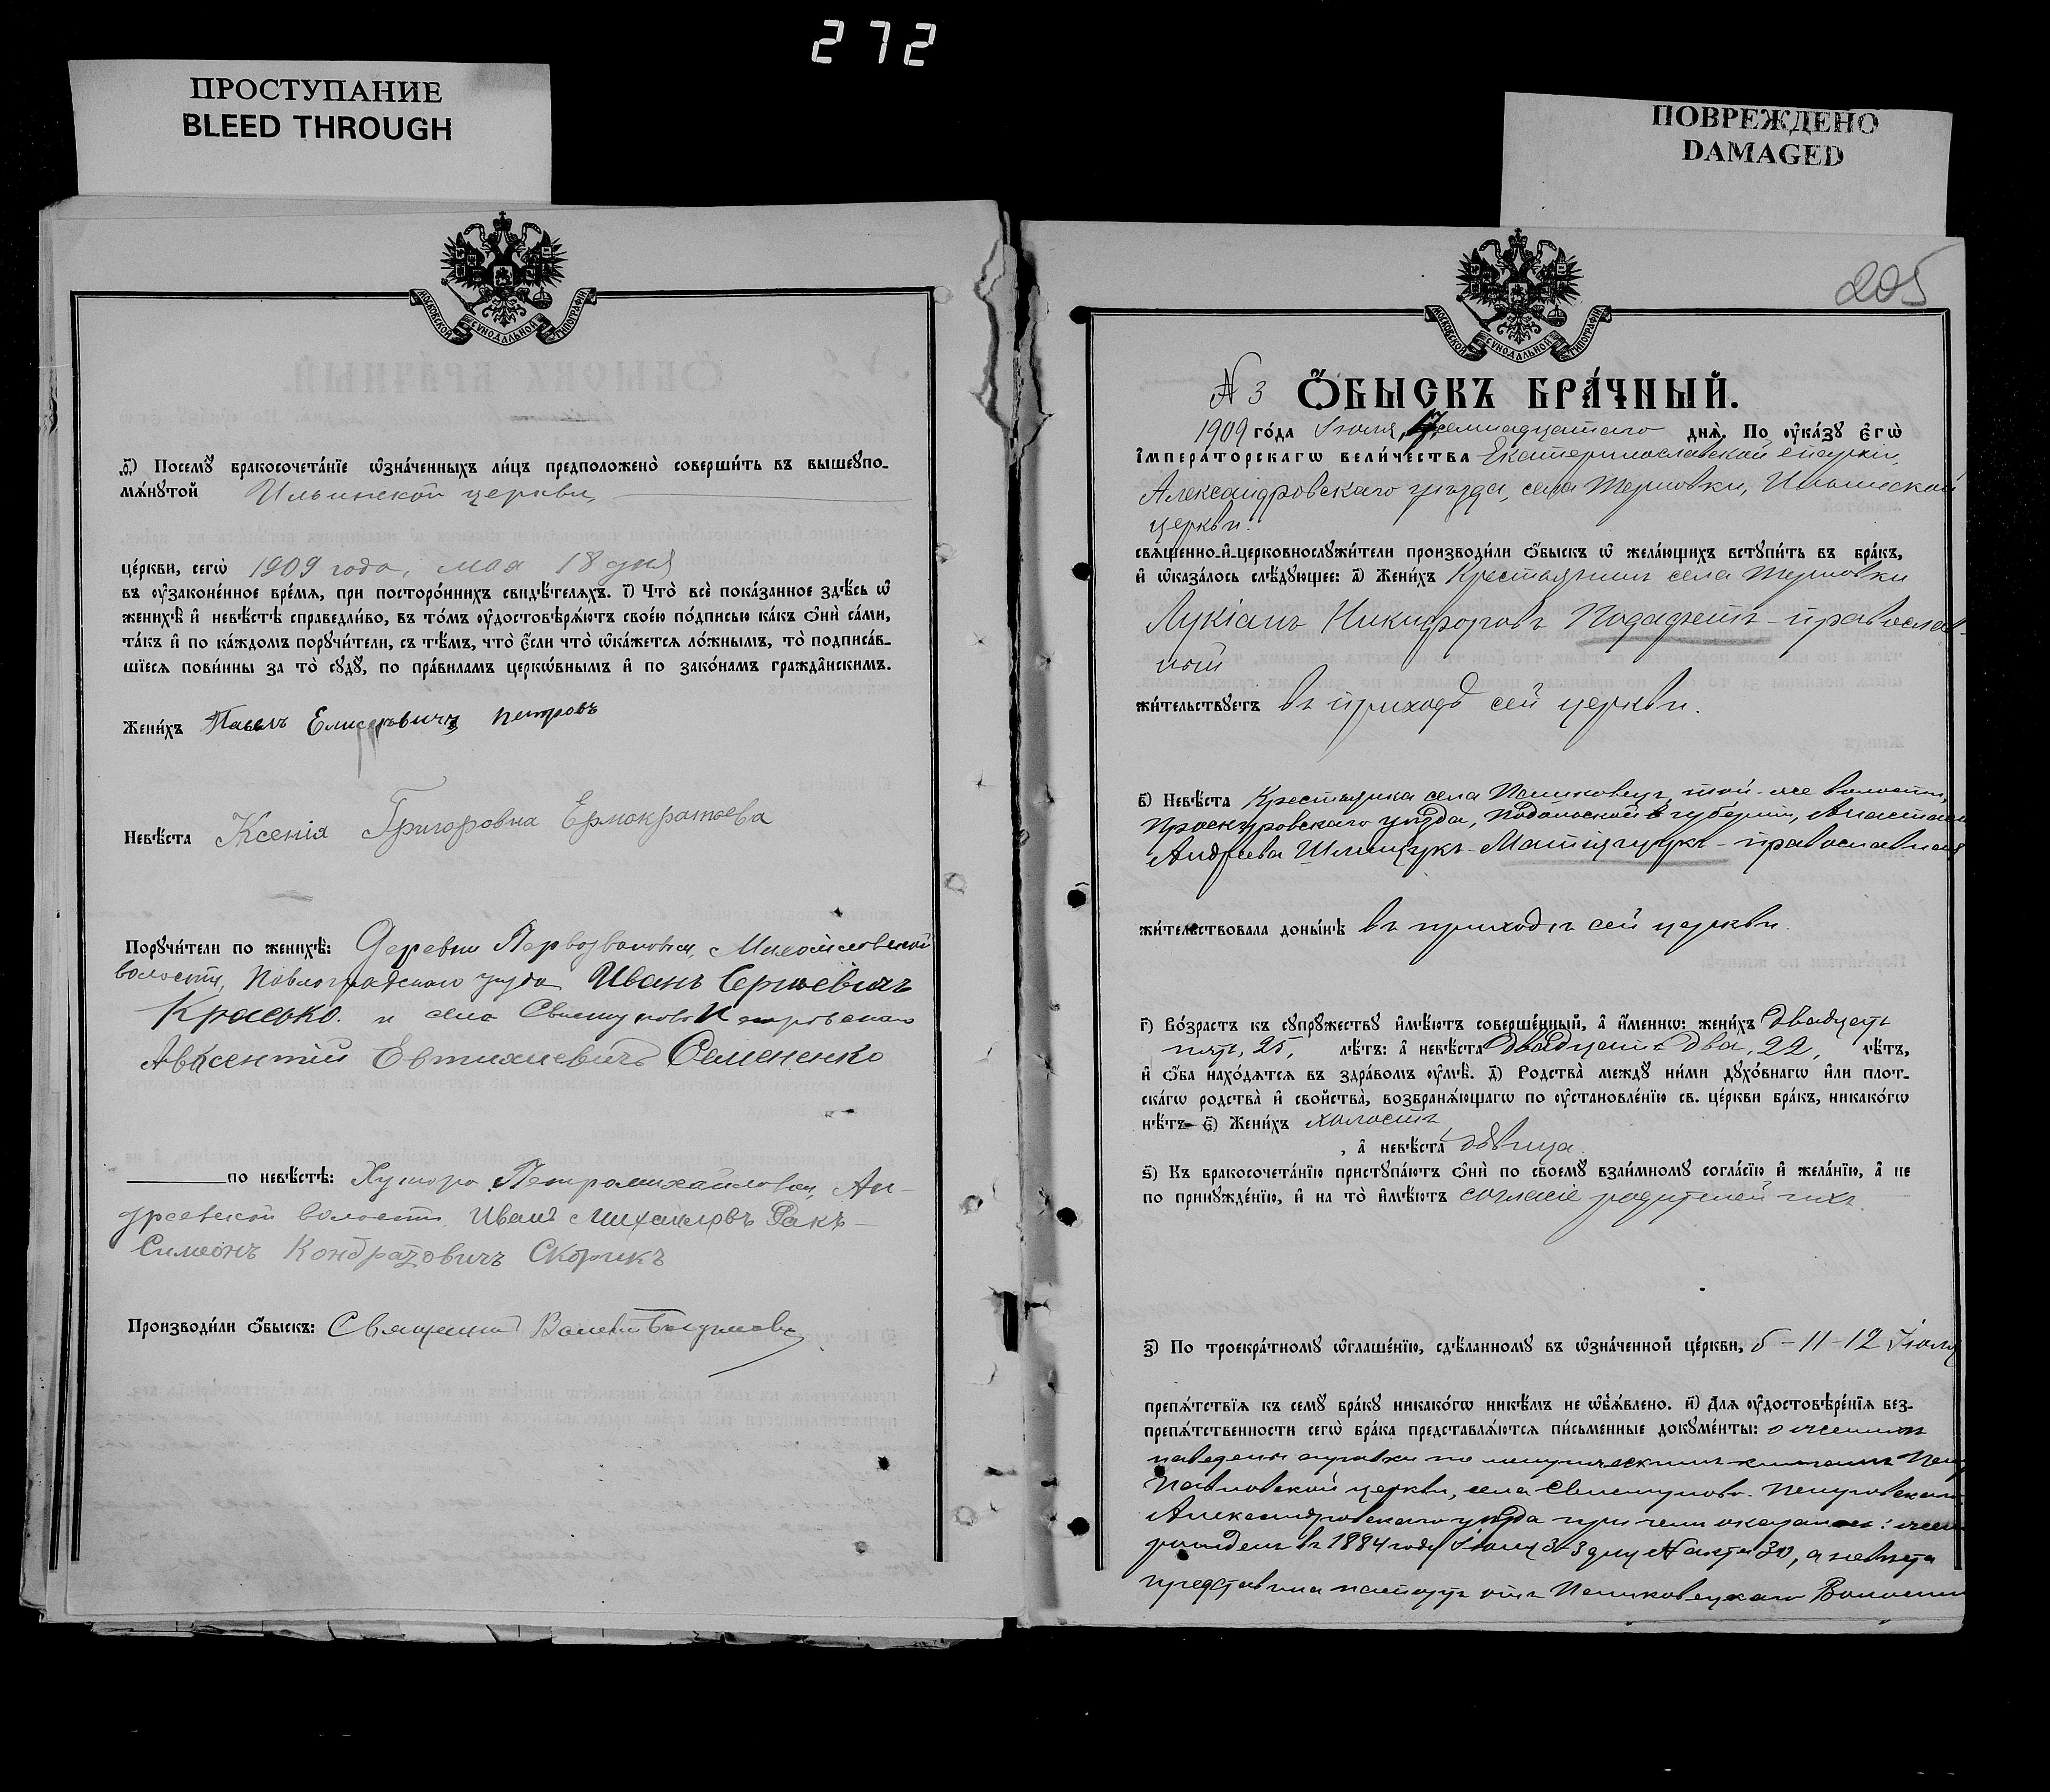 272
ПРОСТУПАНИЕ
BLEED THROUGH
ПОВРЕЖДЕНО
DAMAGED
МОСКОВСКОЙ СѴНОДАЛЬНОЙ ТИПОГРАФІИ
ѳ҃) Посемꙋ̀ бракосочета́нїе ѡ҆зна́ченныхъ ли́цъ предположено̀ соверши́ть въ вышеꙋпо-
мѧ́нꙋтой Ильинской церкви,
це́ркви, сегѡ̀ 1909 года, мая 18 дня
въ ᲂу҆законе́нное вре́мѧ, при посторо́ннихъ свидѣ́телѧхъ. і҃) Что̀ всѐ пока́занное здѣ́сь ѡ҆
женихѣ̀ и҆ невѣ́стѣ справедли́во, въ то́мъ ᲂу҆достовѣрѧ́ютъ свое́ю по́дписью ка́къ ѻ҆нѝ са́ми,
та́къ и҆ по ка́ждомъ порꙋчи́тели, съ тѣ́мъ, что̀ є҆́сли что̀ ѡ҆ка́жется ло́жнымъ, то̀ подписа́в-
шїеся пови́нны за то̀ сꙋдꙋ̀, по пра́виламъ церко́внымъ и҆ по зако́намъ гражда́нскимъ.
Жени́хъ Павелъ Елисѣевичъ Петровъ
Невѣ́ста Ксенія Григоровна Ермократьева
Порꙋчи́тели по женихѣ̀: Деревни Первозвановки, Михайловской
волости, Павлоградскаго уѣзда Иванъ Сергѣевичъ
Красько. и села Свистуново Петровскаго
Авксентій Евтихиевичъ Семененко
по невѣ́стѣ: Хутора Петромихайловки, Ан-
дреевской волости Иванъ Михаиловъ Ракъ
Симеонъ Кондратовичъ Скорикъ
Производи́ли ѻ҆́быскъ: Священникъ
205
МОСКОВСКОЙ СѴНОДАЛЬНОЙ ТИПОГРАФІИ
N 3 Ѻ҆́БЫСКЪ БРА́ЧНЫЙ.
1909 го́да Іюля, 17, семнадцатаго днѧ̀. По ᲂу҆ка́зꙋ є҆гѡ̀
і҆мпера́торскагѡ вели́чества Екатеринославской епархіи,
Александровскаго уѣзда, села Терновки, Иоанновской
церкви.
свѧще́нно-и҆-церковнослꙋжи́тели производи́ли ѻ҆́быскъ ѡ҆ жела́ющихъ встꙋпи́ть въ бра́къ,
и҆ ѡ҆каза́лось слѣ́дꙋющее: а҃) Жени́хъ Крестьянинъ села Терновки
Лукіанъ Никифоровъ православ-
ный
жи́тельствꙋетъ въ приходѣ сей церкви.
в҃) Невѣ́ста Крестьянка села Пашковецъ, той-же волости,
Проскуровскаго уѣзда, Подольской губерніи, Анастасія
Андреева православная
жи́тельствовала доны́нѣ въ приходѣ сей церкви.
г҃) Во́зрастъ къ сꙋпрꙋ́жествꙋ и҆мѣ́ютъ соверше́нный, а҆ и҆́менно: жени́хъ двадцать
пять, 25, лѣ́тъ: а҆ невѣ́ста двадцать два, 22, лѣ́тъ,
и҆ ѻ҆́ба нахо́дѧтсѧ въ здра́вомъ ᲂу҆мѣ̀. д҃) Родства̀ междꙋ̀ ни́ми дꙋхо́внагѡ и҆̀ли плот-
ска́гѡ родства̀ и҆ свойства̀, возбранѧ́ющагѡ по ᲂу҆становле́нїю св. це́ркви бра́къ, никако́гѡ
нѣ́тъ. є҃) Жени́хъ холостъ
, а҆ невѣ́ста дѣвица.
ѕ҃) Къ бракосочета́нїю пристꙋпа́ютъ ѻ҆нѝ по своемꙋ̀ взаи́мномꙋ согла́сїю и҆ жела́нїю, а҆ не
по принꙋжде́нїю, и҆ на то̀ и҆мѣ́ютъ согласіе родителей ихъ.
з҃) По троекра́тномꙋ ѡ҆глаше́нїю, сдѣ́ланномꙋ въ ѡ҆зна́ченной це́ркви, 5-11-12 Іюля
препѧ́тствїѧ къ семꙋ̀ бра́кꙋ никако́гѡ никѣ́мъ не ѡ҆б̾ѧ́влено. и҃) Для ᲂу҆достовѣре́нїѧ без-
препѧ́тственности сегѡ̀ бра́ка представлѧ́ютсѧ пи́сьменные докꙋме́нты: о женихѣ
наведены справки по метрическимъ книгамъ Петро-
Павловской церкви, села Свистунова-Петровскаго
Александровскаго уѣзда при чемъ оказалось: женихъ
рожденъ въ 1884 году Іюня 3 дня N акта 30, а невѣста
представила паспортъ отъ Пашковецкаго Волостн